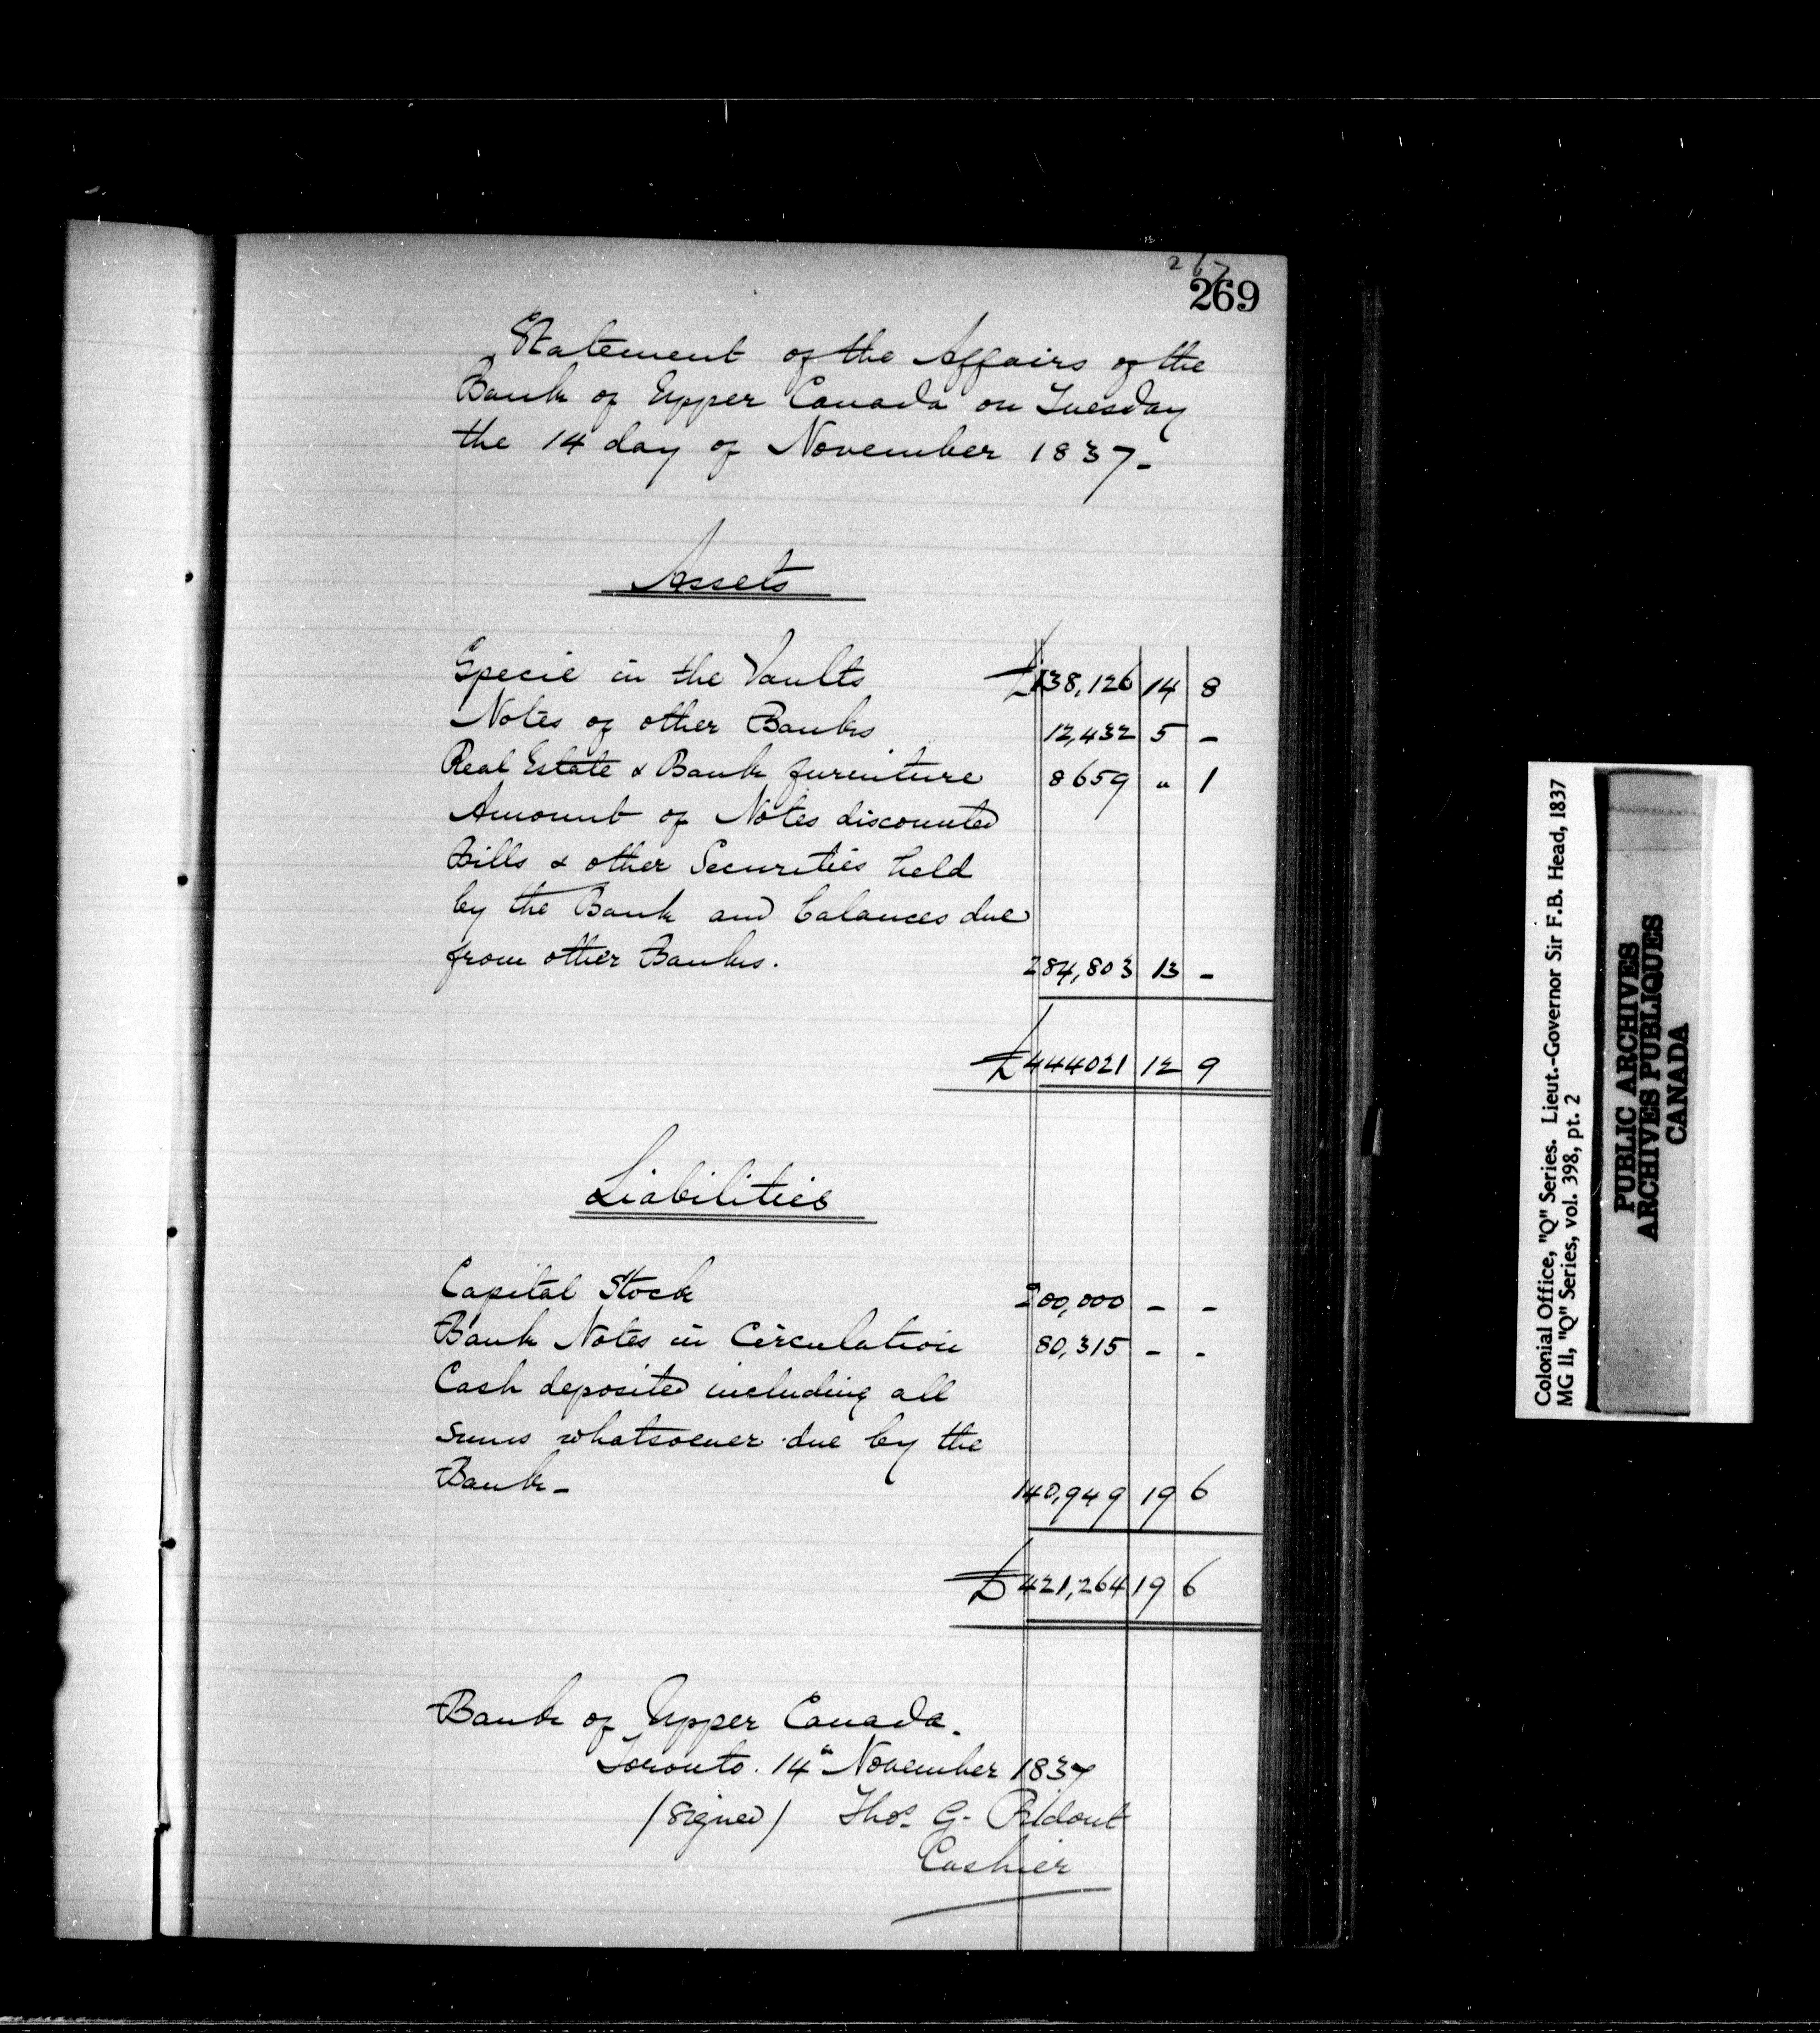 267
269
Statement of the Affairs of the
Bank of Upper Canada on Tuesday
the 14 day of November 1837-
Assets
Specie in the Vaults £138,126 14 8
Notes of other Banks 12,432 5 -
Real Estate & Bank furniture 8659 " 1
Amount of Notes discounted
Bills & other Securities held
by the Bank and balances due
from other Banks. 284,803 13 -
£444021 12 9
Liabilities
Capital Stock 200,000 - -
Bank Notes in Circulation 80,315 - -
Cash deposited including all
sums whatsoever due by the
Bank- 140,949 19 6
£421,264 19 6
Bank of Upper Canada.
Toronto. 14" November 1837
/signed/ Thos. G. Ridout
Cashier
Colonial Office, "Q" Series. Lieut.-Governor Sir F.B. Head, 1837
MG 11, "Q" Series, vol. 398, pt. 2
PUBLIC ARCHIVES
ARCHIVES PUBLIQUES
CANADA